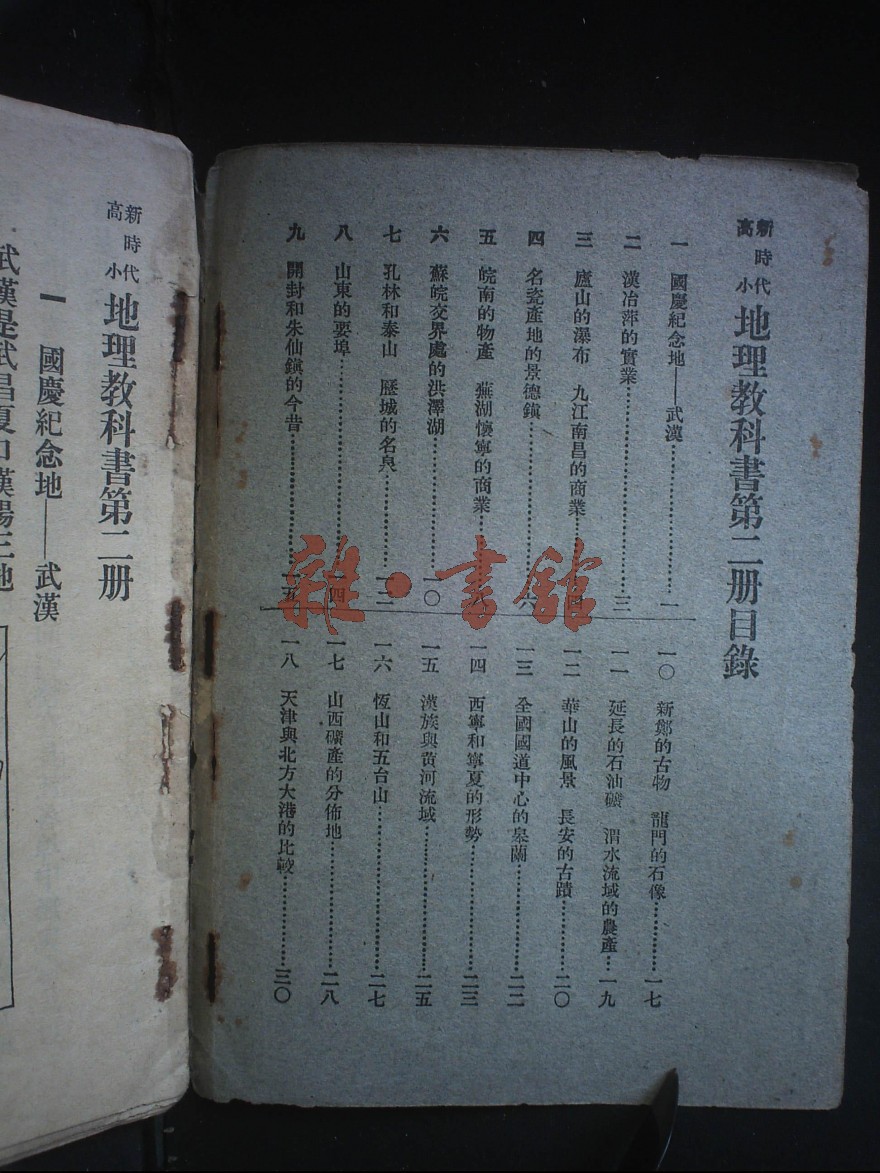 新時代高小地理教科書第二册目錄
一 國慶紀念地——武漢……一
二 漢冶萍的實業……三
三 廬山的瀑布 九江南昌的商業……四
四 名瓷產地的景德鎮……六
五 皖南的物產 蕪湖懷寧的商業……
六 蘇皖交界處的洪澤湖……一〇
七 孔林和泰山 歷城的名泉……一二
八 山東的要埠……一四
九 開封和朱仙鎮的今昔……一五
一〇 新鄭的古物 龍門的石像……一七
一一 延長的石油礦 渭水流域的農產……一九
一二 華山的風景 長安的古蹟……二〇
一三 全國國道中心的皋蘭……二二
一四 西寧和寧夏的形勢……二三
一五 漢族與黃河流域……二五
一六 恆山和五台山……二七
一七 山西礦產的分佈地……二八
一八 天津與北方大港的比較……三〇
雜·書館
新時代高小地理教科書第二册
一 國慶紀念地——武漢
武漢是武昌夏口漢陽三地